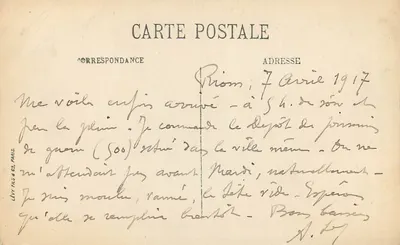 CARTE POSTALE
CORRESPONDANCE
ADRESSE
Riom, 7 Avril 1917
Me voilà enfin arrivé - à 5 h. du soir et
par la pluie. Je commande le Dépôt des prisonniers
de guerre (500) situé dans la ville même - On ne
m'attendait pas avant Mardi, naturellement -
Je suis moulu, vanné, la tête vide - Espérons
qu'elle se remplira bientôt - Bons baisers
LÉVY FILS & Cie, PARIS